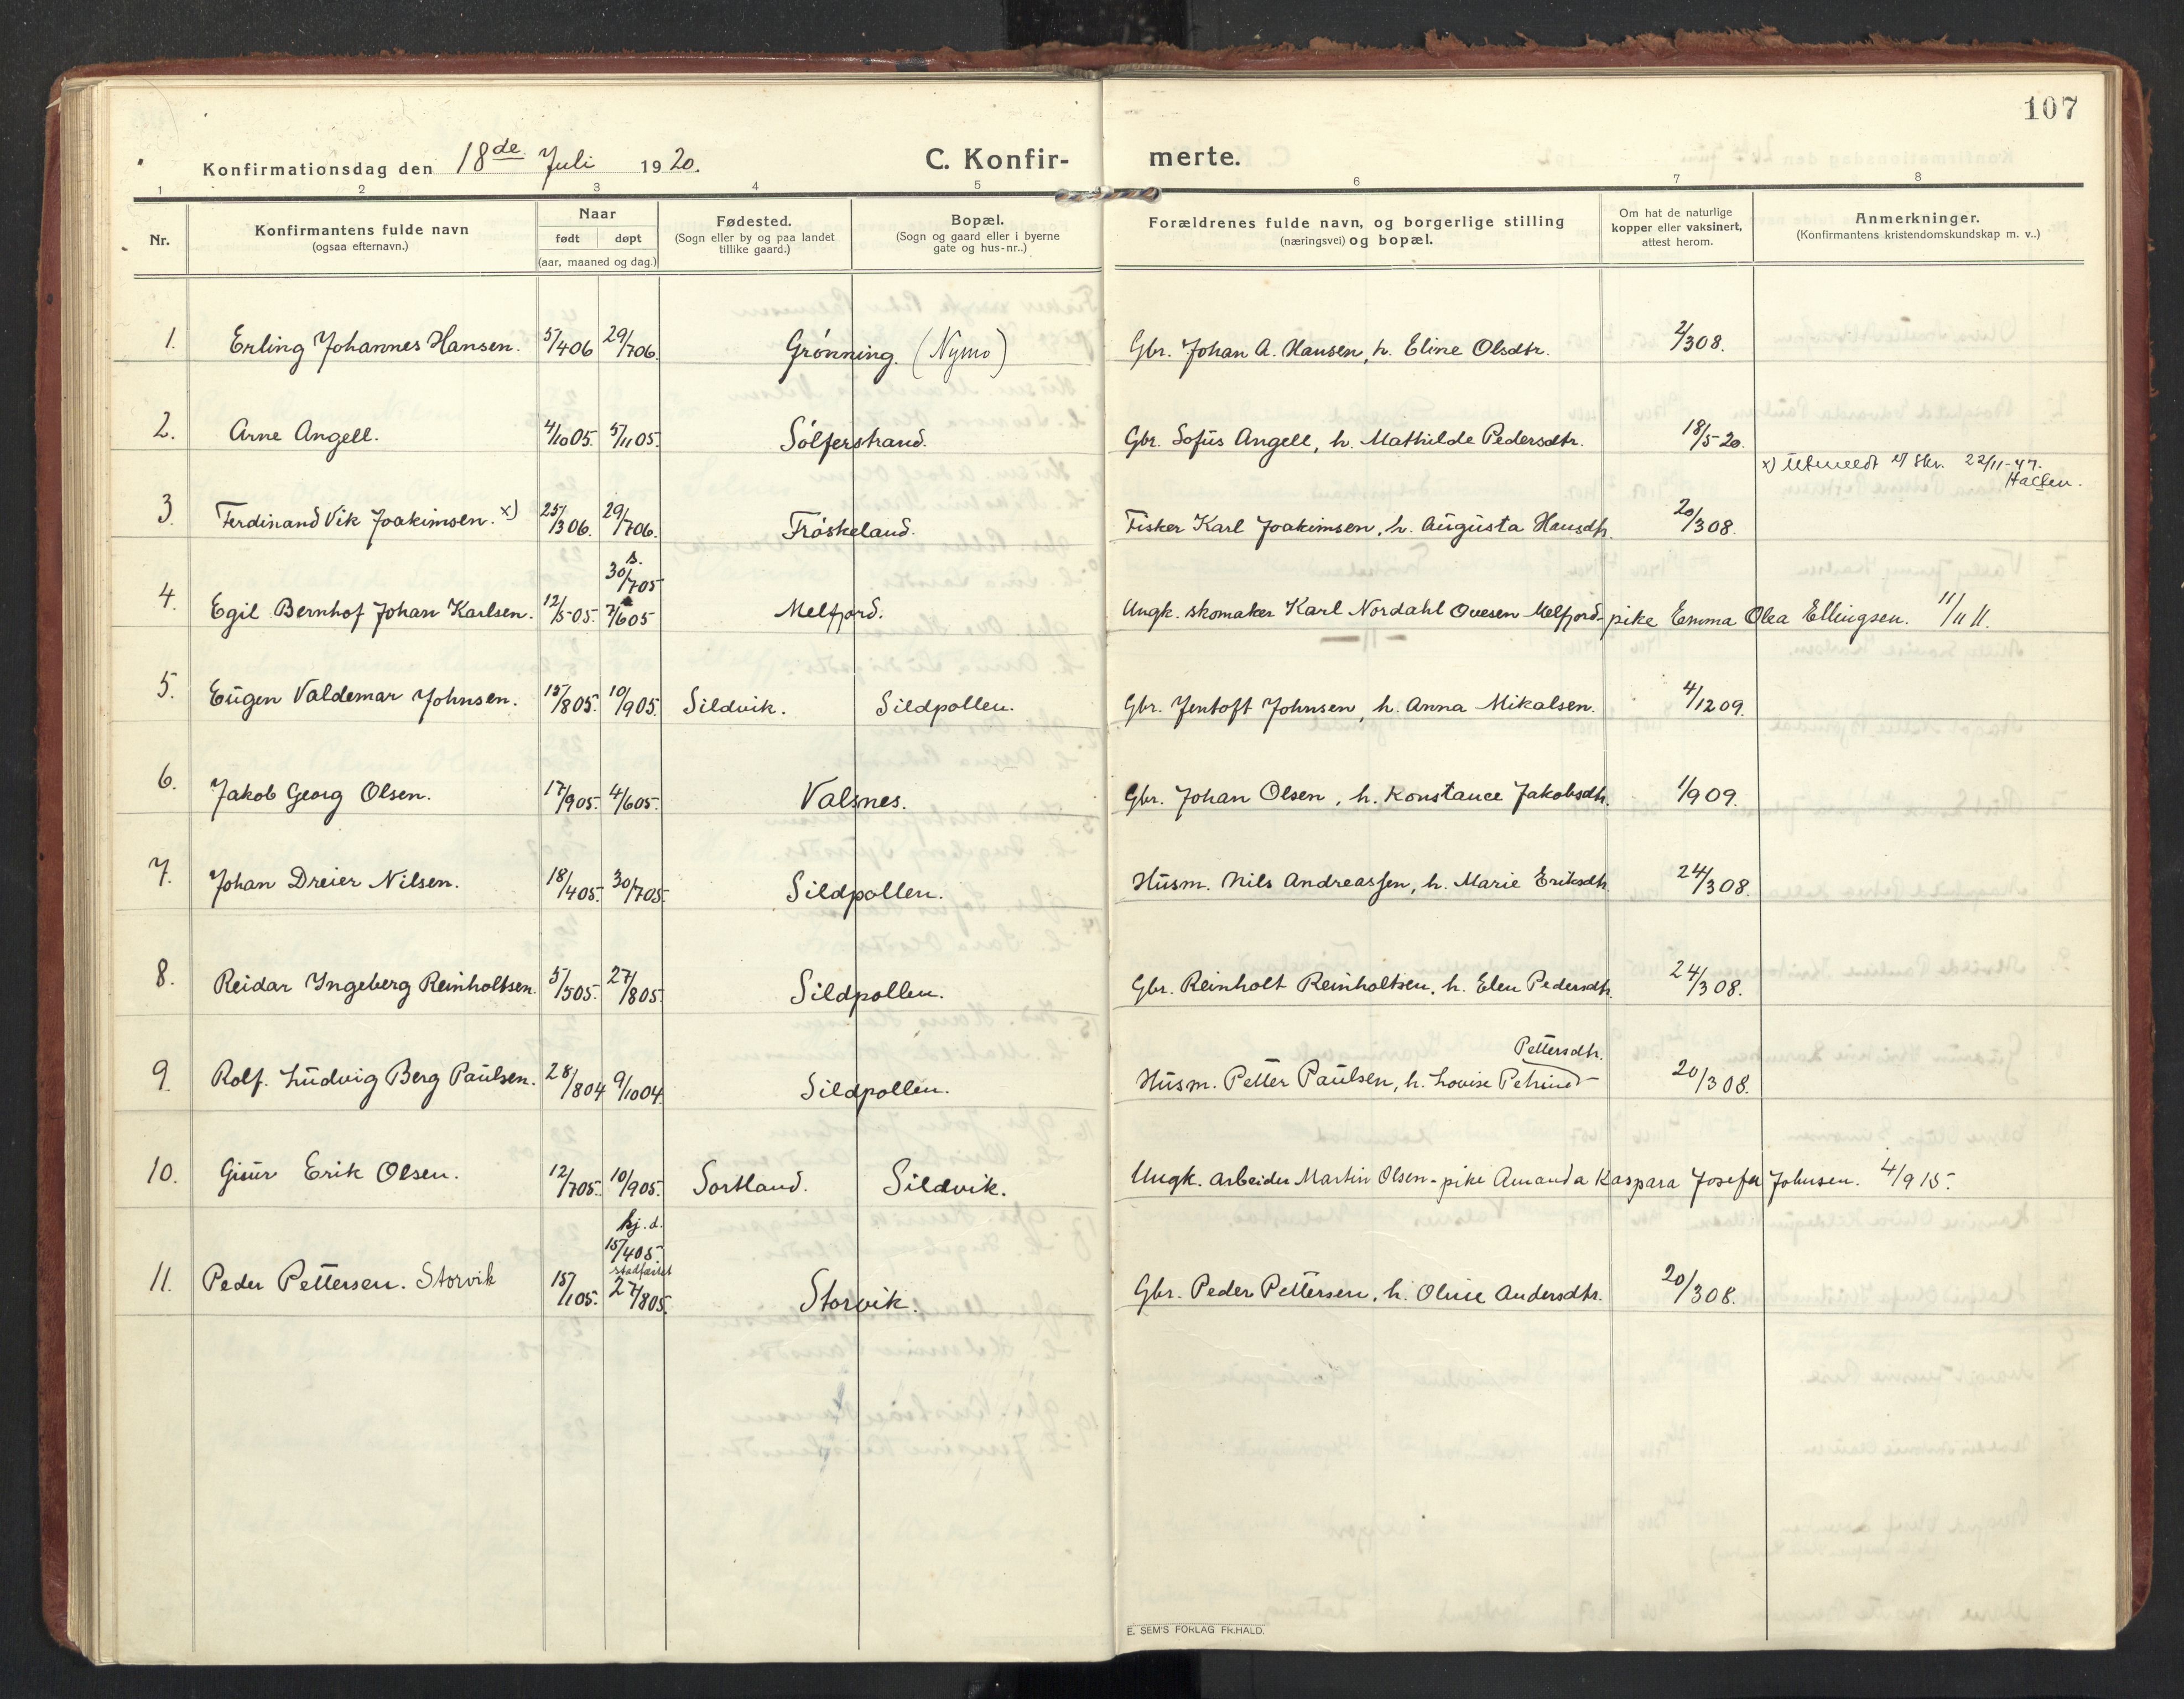 107
Konfirmationsdag den 18de Juli 1920.
C. Konfir- merte.
1 2 3 4 5 6 7 8
Nr.
Konfirmantens fulde navn
(ogsaa efternavn.)
Naar
født døpt
(aar, maaned og dag.)
Fødested.
(Sogn eller by og paa landet
tillike gaard.)
Bopæl.
(Sogn og gaard eller i byerne
gate og hus-nr..)
Forældrenes fulde navn, og borgerlige stilling
(næringsvei) og bopæl.
Om hat de naturlige
kopper eller vaksinert,
attest herom.
Anmerkninger.
(Konfirmantens kristendomskundskap m. v..)
1. Erling Johannes Hansen. 5/4 06 29/7 06. Grønning. (Nymo) Gbr. Johan A. Hansen, h. Eline Olsdtr. 2/3 08.
2. Arne Angell. 4/10 05. 5/11 05. Sølferstrand. Gbr. Sofus Angell, h. Mathilde Pedersdtr. 18/5 20.
x) Utmeldt if skr. 22/11-47.
3. Ferdinand Vik Joakimsen. x) 25/3 06. 29/7 06. Frøskeland. Fisker Karl Joakimsen, h. Augusta Hansdtr. 20/3 08.
s.
30/7 05
4. Egil Bernhof Johan Karlsen. 12/5 05. 7/6 05 Melfjord. Ungk. skomaker Karl Nordahl Ovesen Melfjord - pike Emma Olea Ellingsen. 11/11 11.
5. Eugen Valdemar Johnsen. 15/8 05. 10/9 05. Sildvik. Sildpollen. Gbr. Jentoft Johnsen, h. Anna Mikalsen. 4/12 09.
6. Jakob Georg Olsen. 17/9 05. 4/6 05. Valsnes. Gbr. Johan Olsen, h. Konstance Jakobsdtr. 1/9 09.
7. Johan Dreier Nilsen. 18/4 05. 30/7 05. Sildpollen. Husm. Nils Andreassen, h. Marie Eriksdtr. 24/3 08.
8. Reidar Ingeberg Reinholtsen. 5/5 05. 27/8 05. Sildpollen. Gbr. Reinholt Reinholtsen, h. Elen Pedersdtr. 24/3 08.
Pettersdtr.
9. Rolf. Ludvig Berg Paulsen. 28/8 04 9/10 04. Sildpollen. Husm. Petter Paulsen, h. Lovise 20/3 08.
10. Gjúir Erik Olsen. 12/7 05. 10/9 05. Sortland. Sildvik. Ungk. arbeider Martin Olsen - pike Amanda Kaspara Josefa Johnsen. 4/9 15.
hj. d.
15/4 05.
stadfæstet
11. Peder Pettersen. Storvik 15/1 05. 27/8 05. Storvik. Gbr. Peder Pettersen, h. Oline Andersdtr. 20/3 08.
E. SEM'S FORLAG FR.HALD.